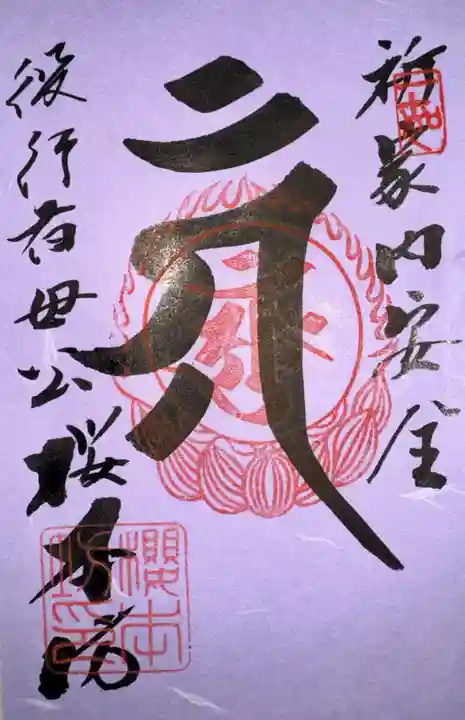 祈家内安全
役行者母公
桜本坊
櫻本坊印